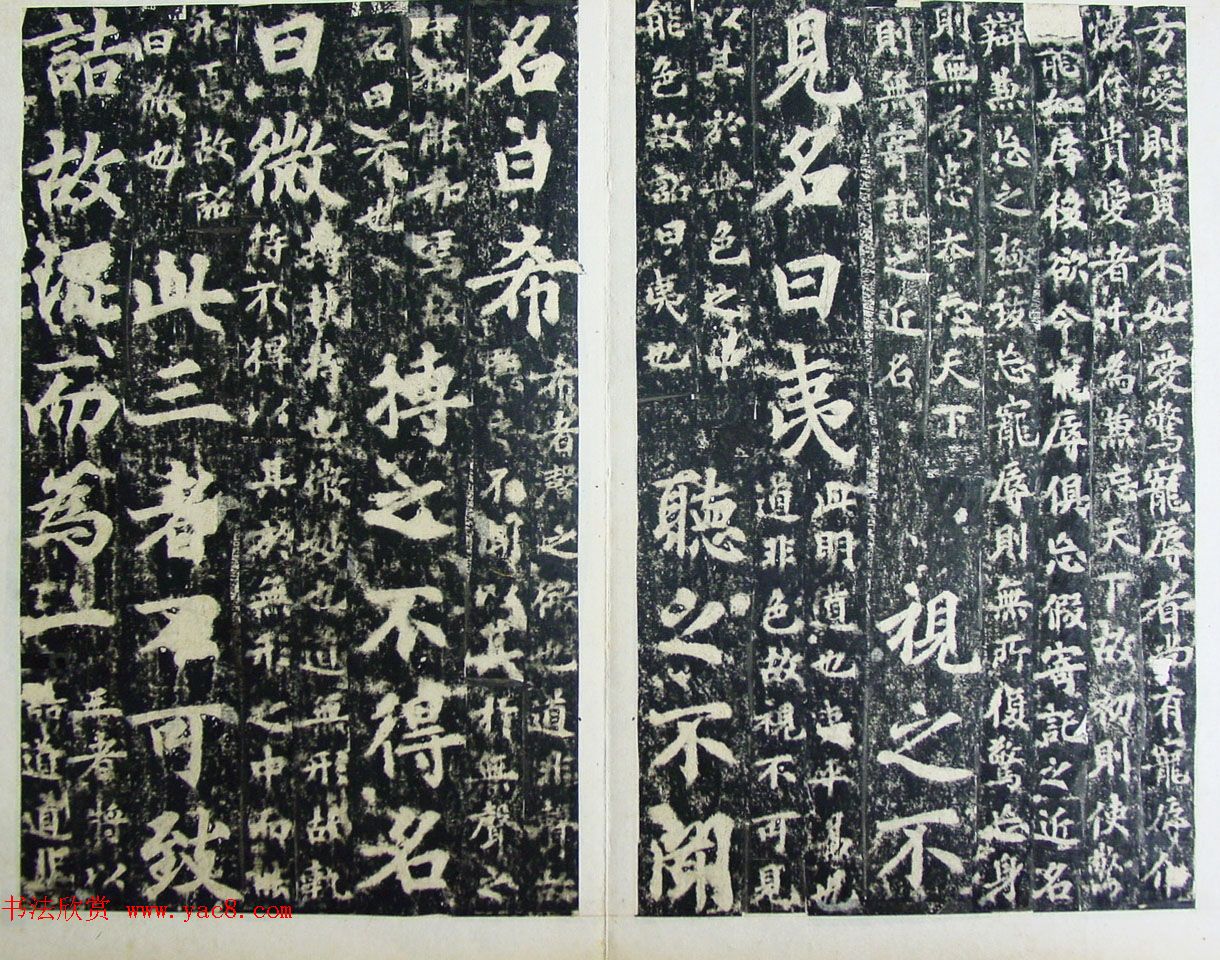 方愛則貴不如愛驚寵辱者尚有寵辱介
懷貴愛者為兼忘天下故初則使驚
能如辱後欲令寵辱俱忘假寄託之近名
辯兼忘之極致忘寵辱則無所復驚忘身
則無為患本忘天下
則無寄託之近名
視之不
見名曰夷
此明道也夷平易也
道非色故視不可見
以其於無色之中
能色故名曰夷也
聽之不聞
名曰希
希者聲之微也道非聲故
聽之不聞以其於無聲之
中獨能和焉故
名曰希也
搏之不得名
曰微
搏執持也微妙也道無形故執
持不得以其於無形之中而能
形焉故名
曰微也
此三者不可致
詰故混而為一
三者將以
詰道道非
书法欣赏 www.yac8.com